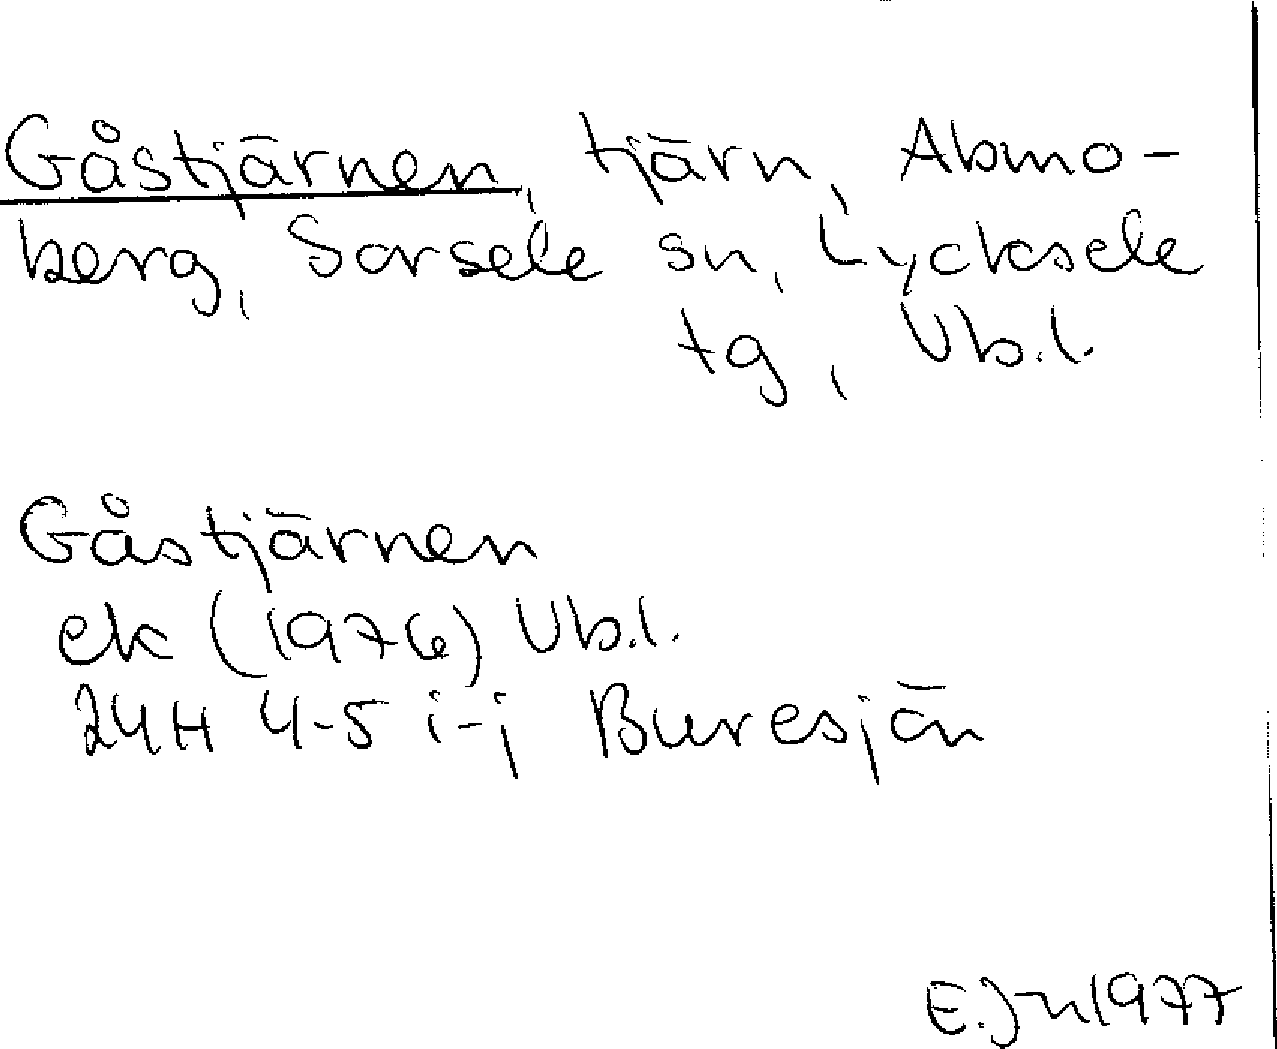 Gåstjärnen, tjärn, Abmo-
berg, Sorsele sn, Lycksele
tg, Vb.l.
Gåstjärnen
ek (1976) Vb.l.
24H 4-5 i-j Buresjön
E.J-n 1977